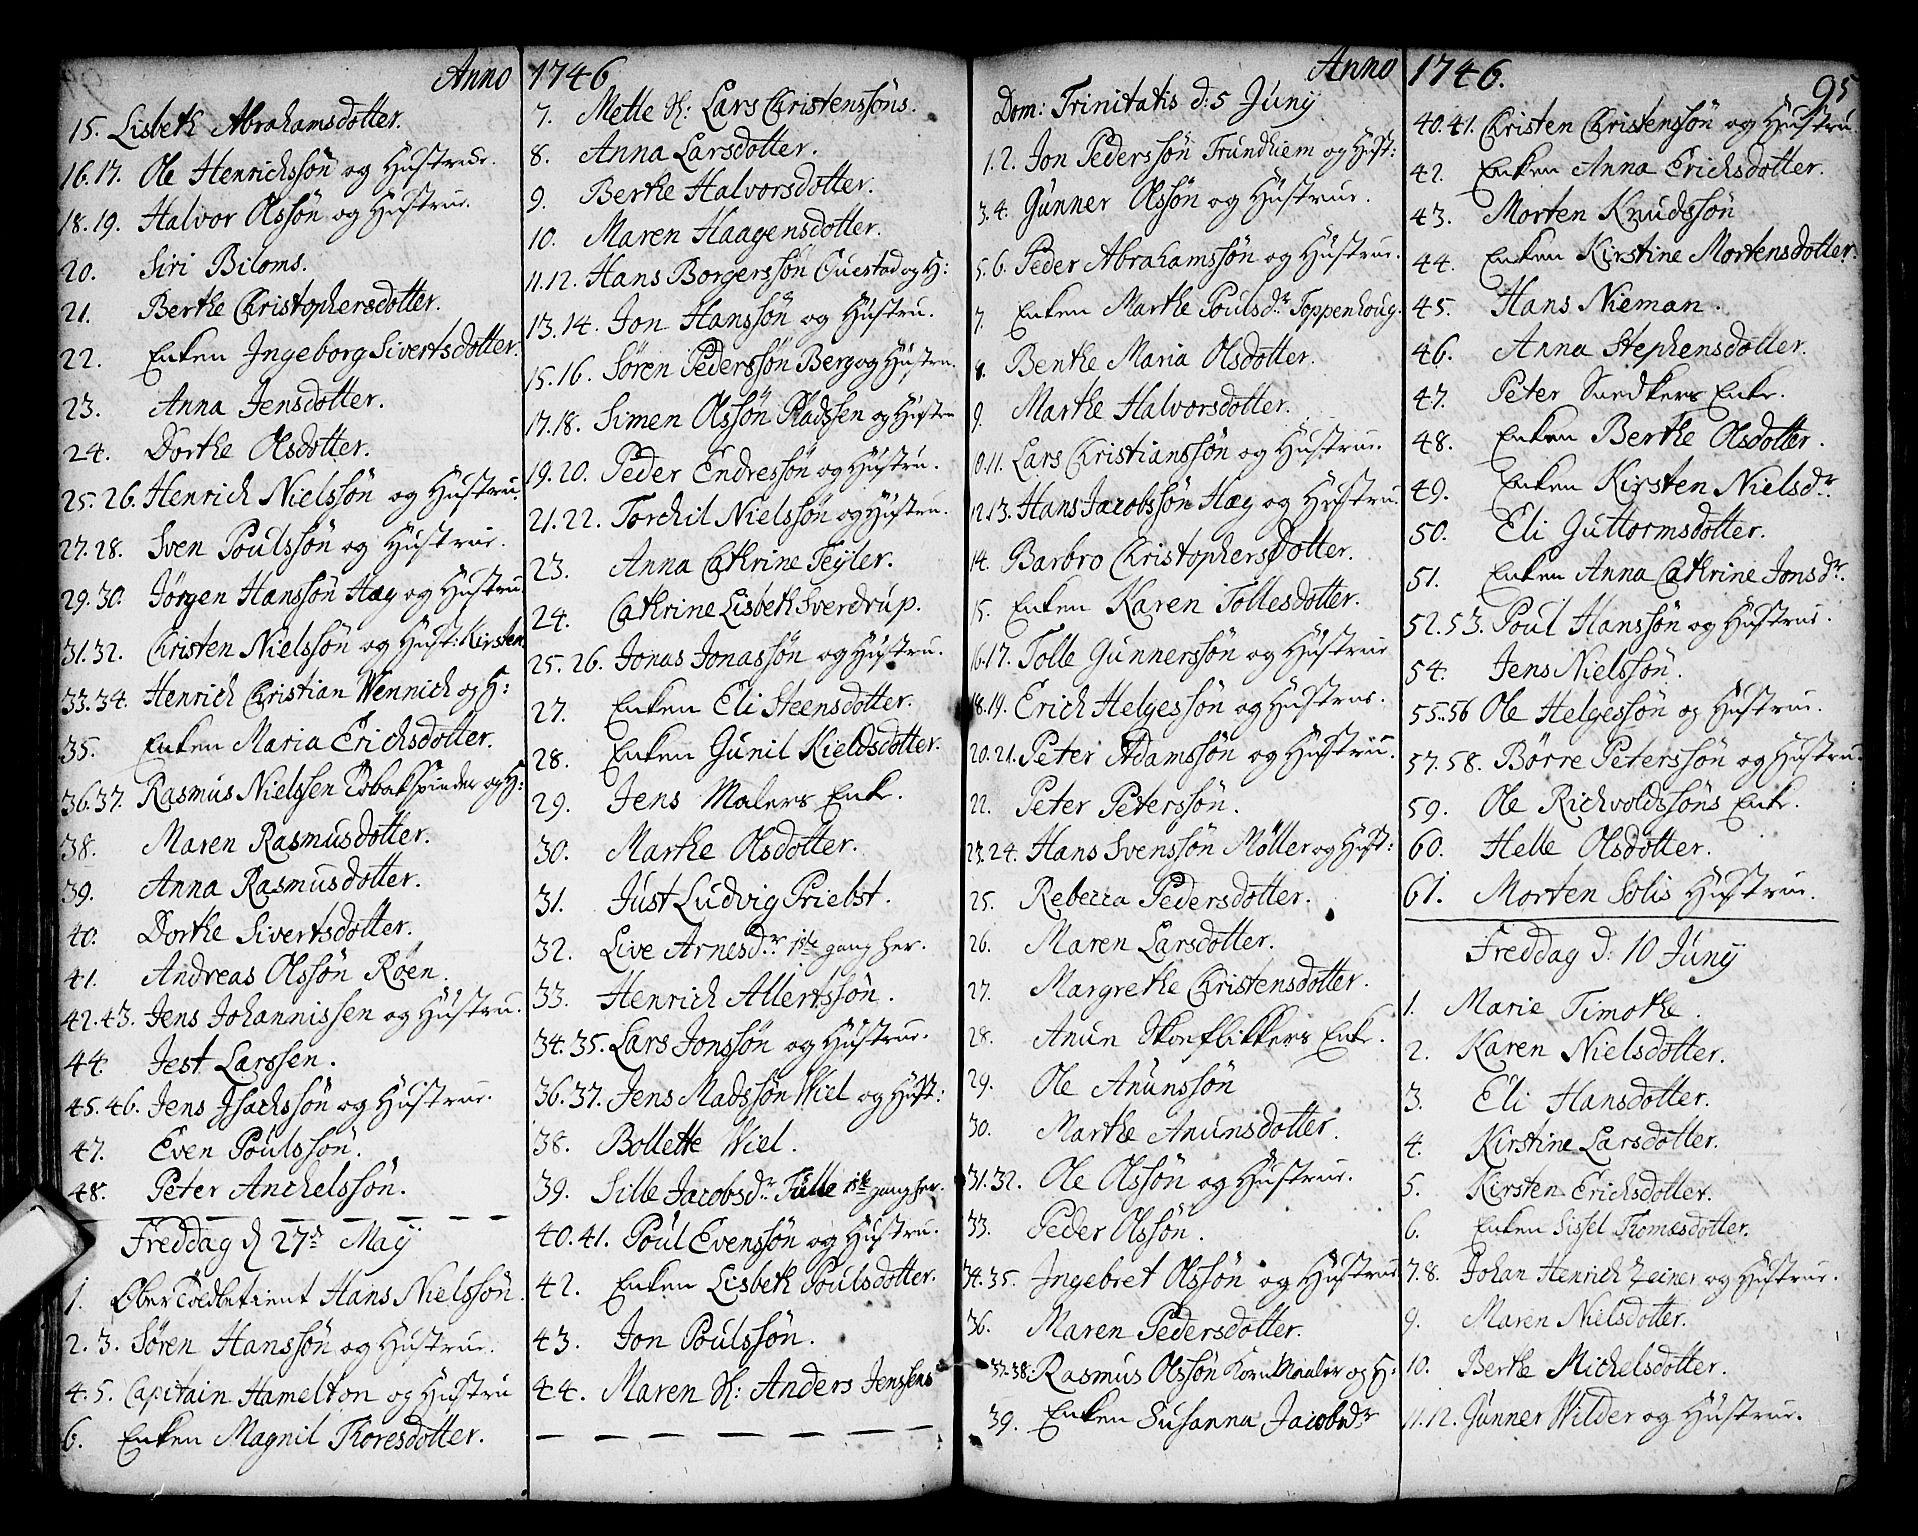 Anno 1746
15. Lisbeth Abrahamsdotter.
16. 17. Ole Henrichssön og Hustrue.
18. 19. Halvor Olssön og Hustrue.
20. Siri Biloms.
21. Berthe Christophersdotter.
22. Enken Ingeborg Sivertsdotter.
23. Anna Jensdotter.
24. Dorthe Olsdotter.
25. 26. Henrich Nielssön og Hustru.
27. 28. Sven Poulssön og Hustrue.
29. 30. Jörgen Hanssön Hæg og Hustru
31. 32. Christen Nielssön og Hust: Kirsten
33. 34. Henrich Christian Wennich og H:
35. Enken Maria Erichsdotter.
36. 37. Rasmus Nielssen Tobakspinder og H:
38. Maren Rasmusdotter.
39. Anna Rasmusdotter.
40. Dorthe Sivertsdotter.
41. Andreas Olssön Röen.
42. 43. Jens Johannissen og Hustru.
44. Jest Larssen.
45. 46. Jens Jsachssön og Hustrue.
47. Even Poulssön.
48. Peter Anchelssön.
Freddag d 27de Maij
1. Ober Toldbetient Hans Nielssön.
2. 3. Sören Hanssön og Hustrue.
4. 5. Capitain Hamelton og Hustru
6. Enken Magnil Thoresdotter.
7. Mette H: Lars Christenssöns.
8. Anna Larsdotter.
9. Berthe Halvorsdotter.
10. Maren Haagensdotter.
11. 12. Hans Borgerssön Questad og H:
13. 14. Jon Hanssön og Hustru.
15. 16. Sören Pederssön Berg og Hustru.
17. 18. Simen Olssön Pladssen og Hustru
19. 20. Peder Endressön og Hustru.
21. 22. Torchil Nielssön og Hustru.
23. Anna Cathrine Feyler.
24. Cathrine Lisbeth Sverdrup.
25. 26. Jonas Jonassön og Hustru.
27. Enken Eli Steensdotter.
28. Enken Gunil Kieldsdotter.
29. Jens Malers Enke.
30. Marthe Olsdotter.
31. Just Ludvig Priebst.
32. Live Arnesdr. 1ste gang her.
33. Henrich Allertssön.
34. 35. Lars Jonssön og Hustrue.
36. 37. Jens Madssön Wiel og Hust:
38. Bollette Wiel.
39. Sille Jacobsdr. Tulle 1ste gang her.
40. 41. Poul Evenssön og Hustru.
42. Enken Lisbeth Poulsdotter.
43. Jon Poulssön.
44. Maren H: Anders Jenssens
Anno 1746.
95
Dom: Trinitatis d: 5 Junij
1. 2. Jon Pederssön Trundhiem og Hust:
3. 4. Gunner Olssön og Hustrue.
5. 6. Peder Abrahamssön og Hustrue.
7. Enken Marthe Poulsdr. Toppenhoug.
8. Benthe Maria Olsdotter.
9. Marthe Halvorsdotter.
10. 11. Lars Christianssön og Hustrue.
12. 13. Hans Jacobssön Hæg og Hustru
14. Barbro Christophersdotter.
15. Enken Karen Tollesdotter.
16. 17. Tolle Gunnerssön og Hustrue
18. 19. Erich Helgessön og Hustrue.
20. 21. Peter Adamssön og Hustru.
22. Peter Peterssön.
23. 24. Hans Svenssön Möller og Hust:
25. Rebecca Pedersdotter.
26. Maren Larsdotter.
27. Margrethe Christensdotter.
28. Anun Skoeflikkers Enke.
29. Ole Anunssön
30. Marthe Anunsdotter.
31. 32. Ole Olssön og Hustrue.
33. Peder Olssön.
34. 35. Ingebret Olssön og Hustrue
36. Maren Pedersdotter.
37. 38. Rasmus Olssön Korn Maaler og H:
39. Enken Susanna Jacobsdr
40. 41. Christen Christenssön og Hustru
42. Enken Anna Erichsdotter.
43. Morten Knudssön
44. Enken Kirstine Mortensdotter.
45. Hans Nieman.
46. Anna Stephensdotter.
47. Peter Snedkers Enke.
48. Enken Berthe Olsdotter.
49. Enken Kirsten Nielsdr.
50. Eli Guttormsdotter.
51. Enken Anna Cathrine Jonsdr.
52. 53. Poul Hanssön og Hustrue.
54. Jens Nielssön.
55. 56 Ole Helgessön og Hustrue.
57. 58. Börre Peterssön og Hustru
59. Ole Richvoldssöns Enke.
60. Helle Olsdotter.
61. Morten Solis Hustrue.
Freddag d: 10 Junij
1. Marie Timothe.
2. Karen Nielsdotter.
3. Eli Hansdotter.
4. Kirstine Larsdotter.
5. Kirsten Erichsdotter.
6. Enken Sissel Thomesdotter.
7. 8. Johan Henrich Zeiner og Hustrue.
9. Maren Nielsdotter.
10. Berthe Michelsdotter.
11. 12. Gunner Wilder og Hustrue.